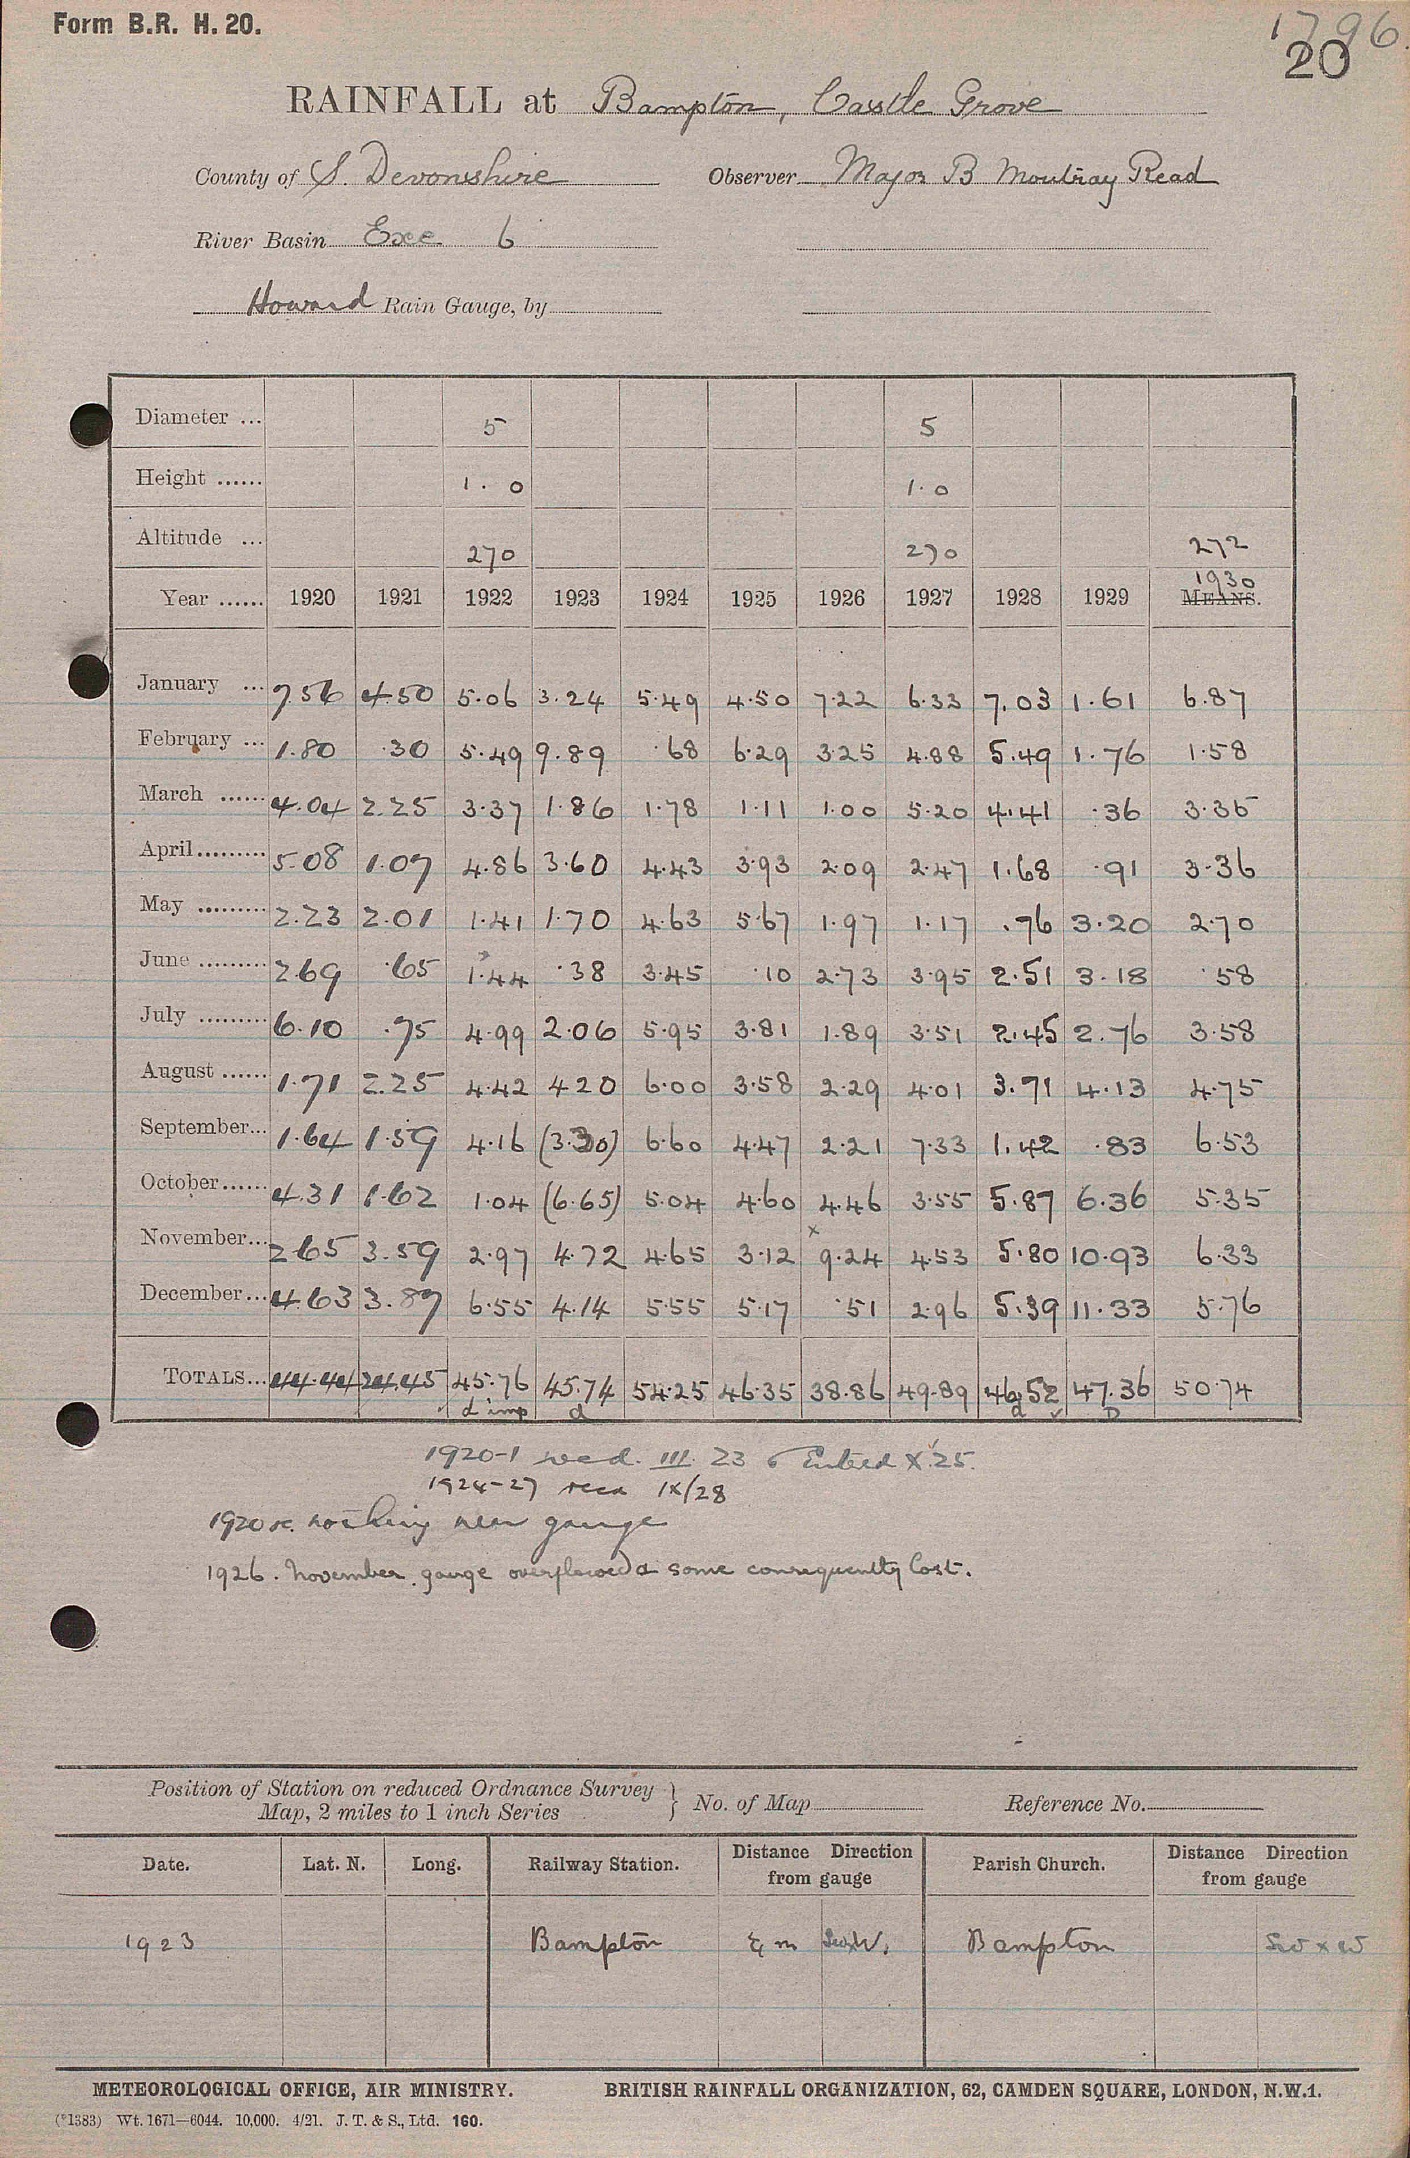 Form B.R. H. 20.
1796.
20
RAINFALL at Bampton, Castle Grove
County of S. Devonshire Observer Major B Moutray Read
River Basin Exe 6
Howard Rain Gauge, by
Diameter ... 5 5
Height ...... 1. 0 1.0
Altitude ... 270 270 272
1930
Year ...... 1920 1921 1922 1923 1924 1925 1926 1927 1928 1929 MEANS.
January ... 7.56 4.50 5.06 3.24 5.49 4.50 7.22 6.33 7.03 1.61 6.87
February ... 1.80 .30 5.49 9.89 .68 6.29 3.25 4.88 5.49 1.76 1.58
March ...... 4.04 2.25 3.37 1.86 1.78 1.11 1.00 5.20 4.41 .36 3.35
April......... 5.08 1.07 4.86 3.60 4.43 3.93 2.09 2.47 1.68 .91 3.36
May ......... 2.23 2.01 1.41 1.70 4.63 5.67 1.97 1.17 .76 3.20 2.70
June ......... 2.69 .65 1.44 .38 3.45 .10 2.73 3.95 2.51 3.18 .58
July ......... 6.10 .75 4.99 2.06 5.95 3.81 1.89 3.51 2.45 2.76 3.58
August ...... 1.71 2.25 4.42 4 20 6.00 3.58 2.29 4.01 3.71 4.13 4.75
September... 1.64 1.59 4.16 (3.30) 6.60 4.47 2.21 7.33 1.42 .83 6.53
October...... 4.31 1.62 1.04 (6.65) 5.04 4.60 4.46 3.55 5.87 6.36 5.35
November... 2.65 3.59 2.97 4.72 4.65 3.12 x 9.24 4.53 5.80 10.93 6.33
December... 4.63 3.87 6.55 4.14 5.55 5.17 .51 2.96 5.39 11.33 5.76
TOTALS... 44.44 24.45 45.76 45.74 54.25 46.35 38.86 49.89 46.52 47.36 50.74
d imp d d ✓ D
1920-1 recd. III 23 Entered X.25.
1924-27 recd IX/28
1920 nothing near gauge
1926. November gauge overflowed & some consequently lost.
Position of Station on reduced Ordnance Survey
Map, 2 miles to 1 inch Series } No. of Map Reference No.
Date. Lat. N. Long. Railway Station. Distance Direction from gauge Parish Church. Distance Direction from gauge
1923 Bampton m W. Bampton SW x W
METEOROLOGICAL OFFICE, AIR MINISTRY. BRITISH RAINFALL ORGANIZATION, 62, CAMDEN SQUARE, LONDON, N.W.1.
(*1383) Wt. 1671—6044. 10,000. 4/21. J. T. & S., Ltd. 160.